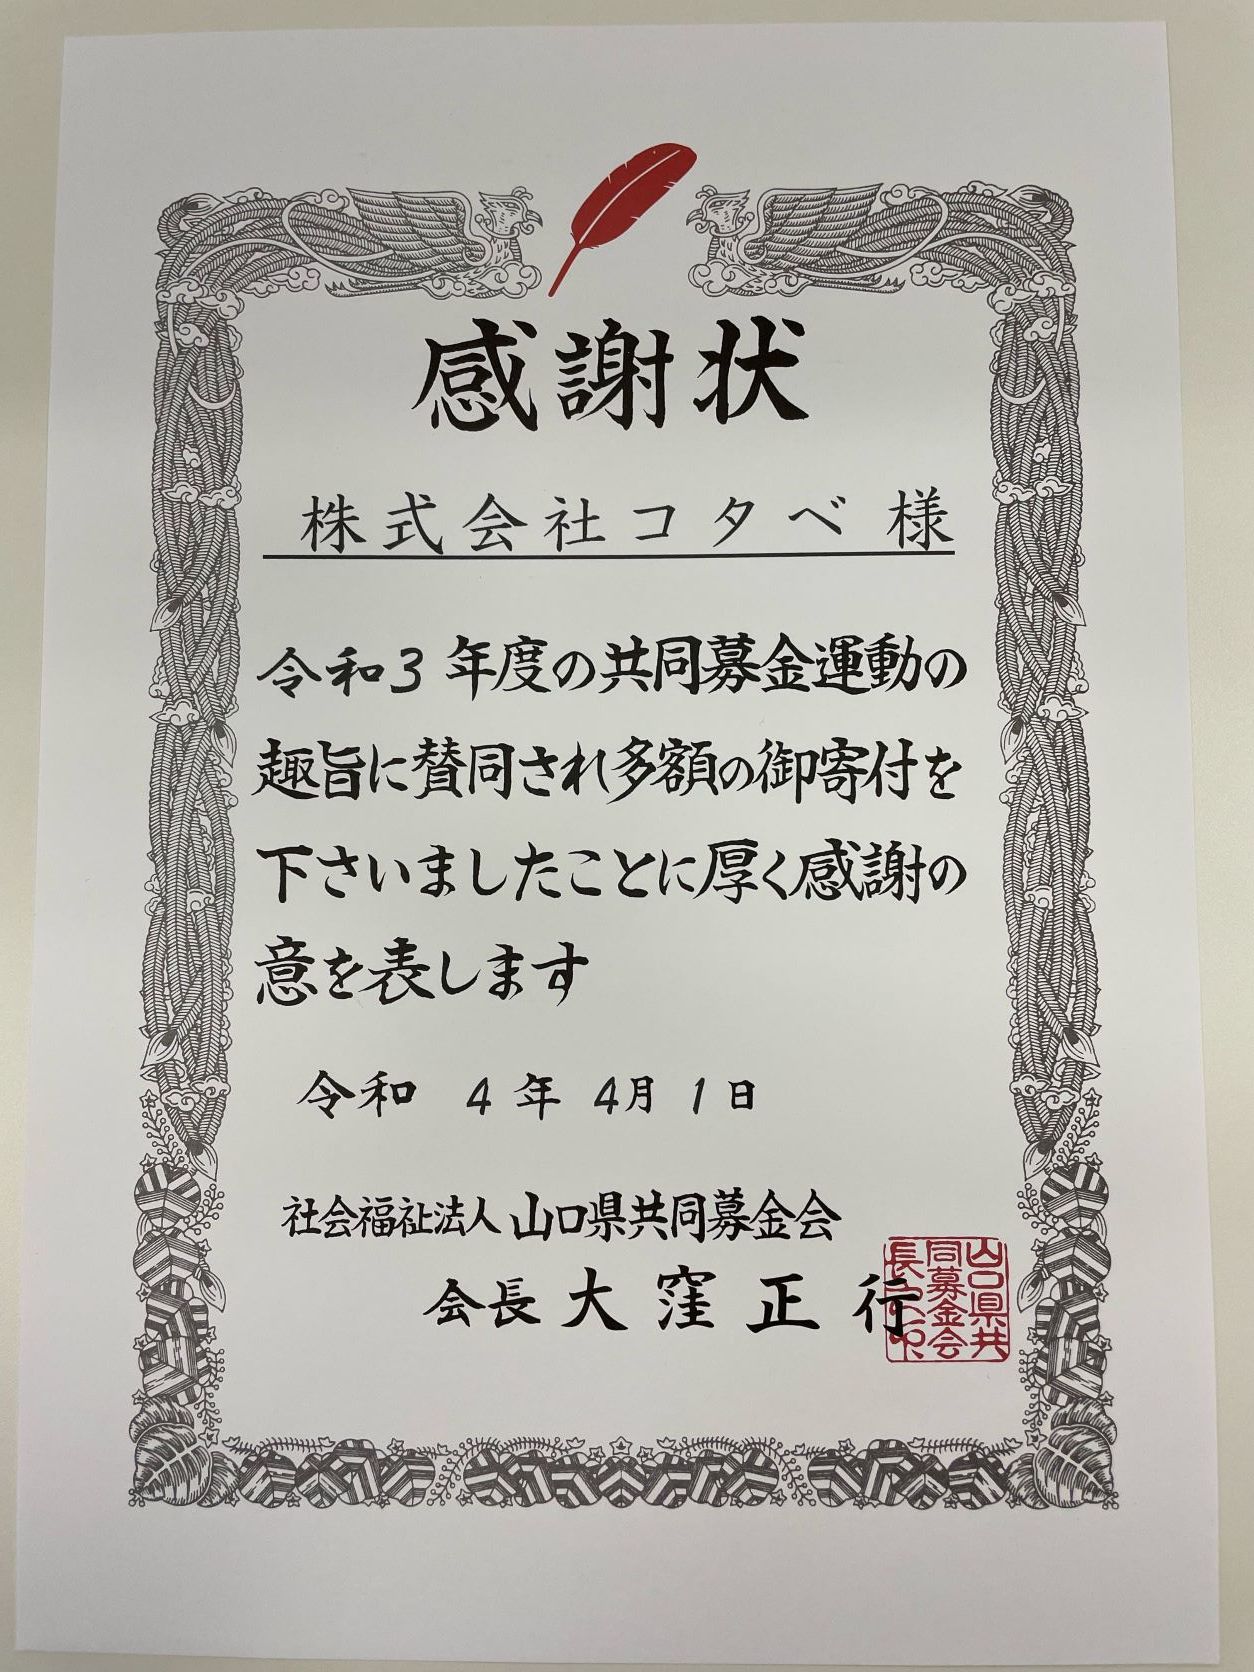 感謝状
株式会社コタベ 様
令和3年度の共同募金運動の
趣旨に賛同され多額の御寄付を
下さいましたことに厚く感謝の
意を表します
令和 4年 4月 1日
社会福祉法人山口県共同募金会
会長 大窪正行
山口県共
同募金会
長之印